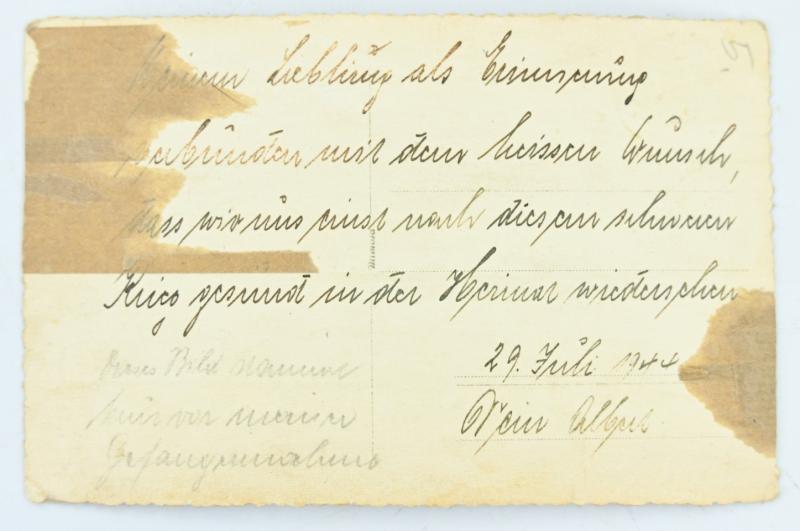 Meinem Liebling als Erinnerung
verbunden mit dem heissen Wunsch,
dass wir uns einst nach diesem schweren
Krieg gesund in der Heimat wiedersehen
29. Juli 1944
Dein Albert
Dieses Bild stammt
kurz vor meiner
Gefangennahme